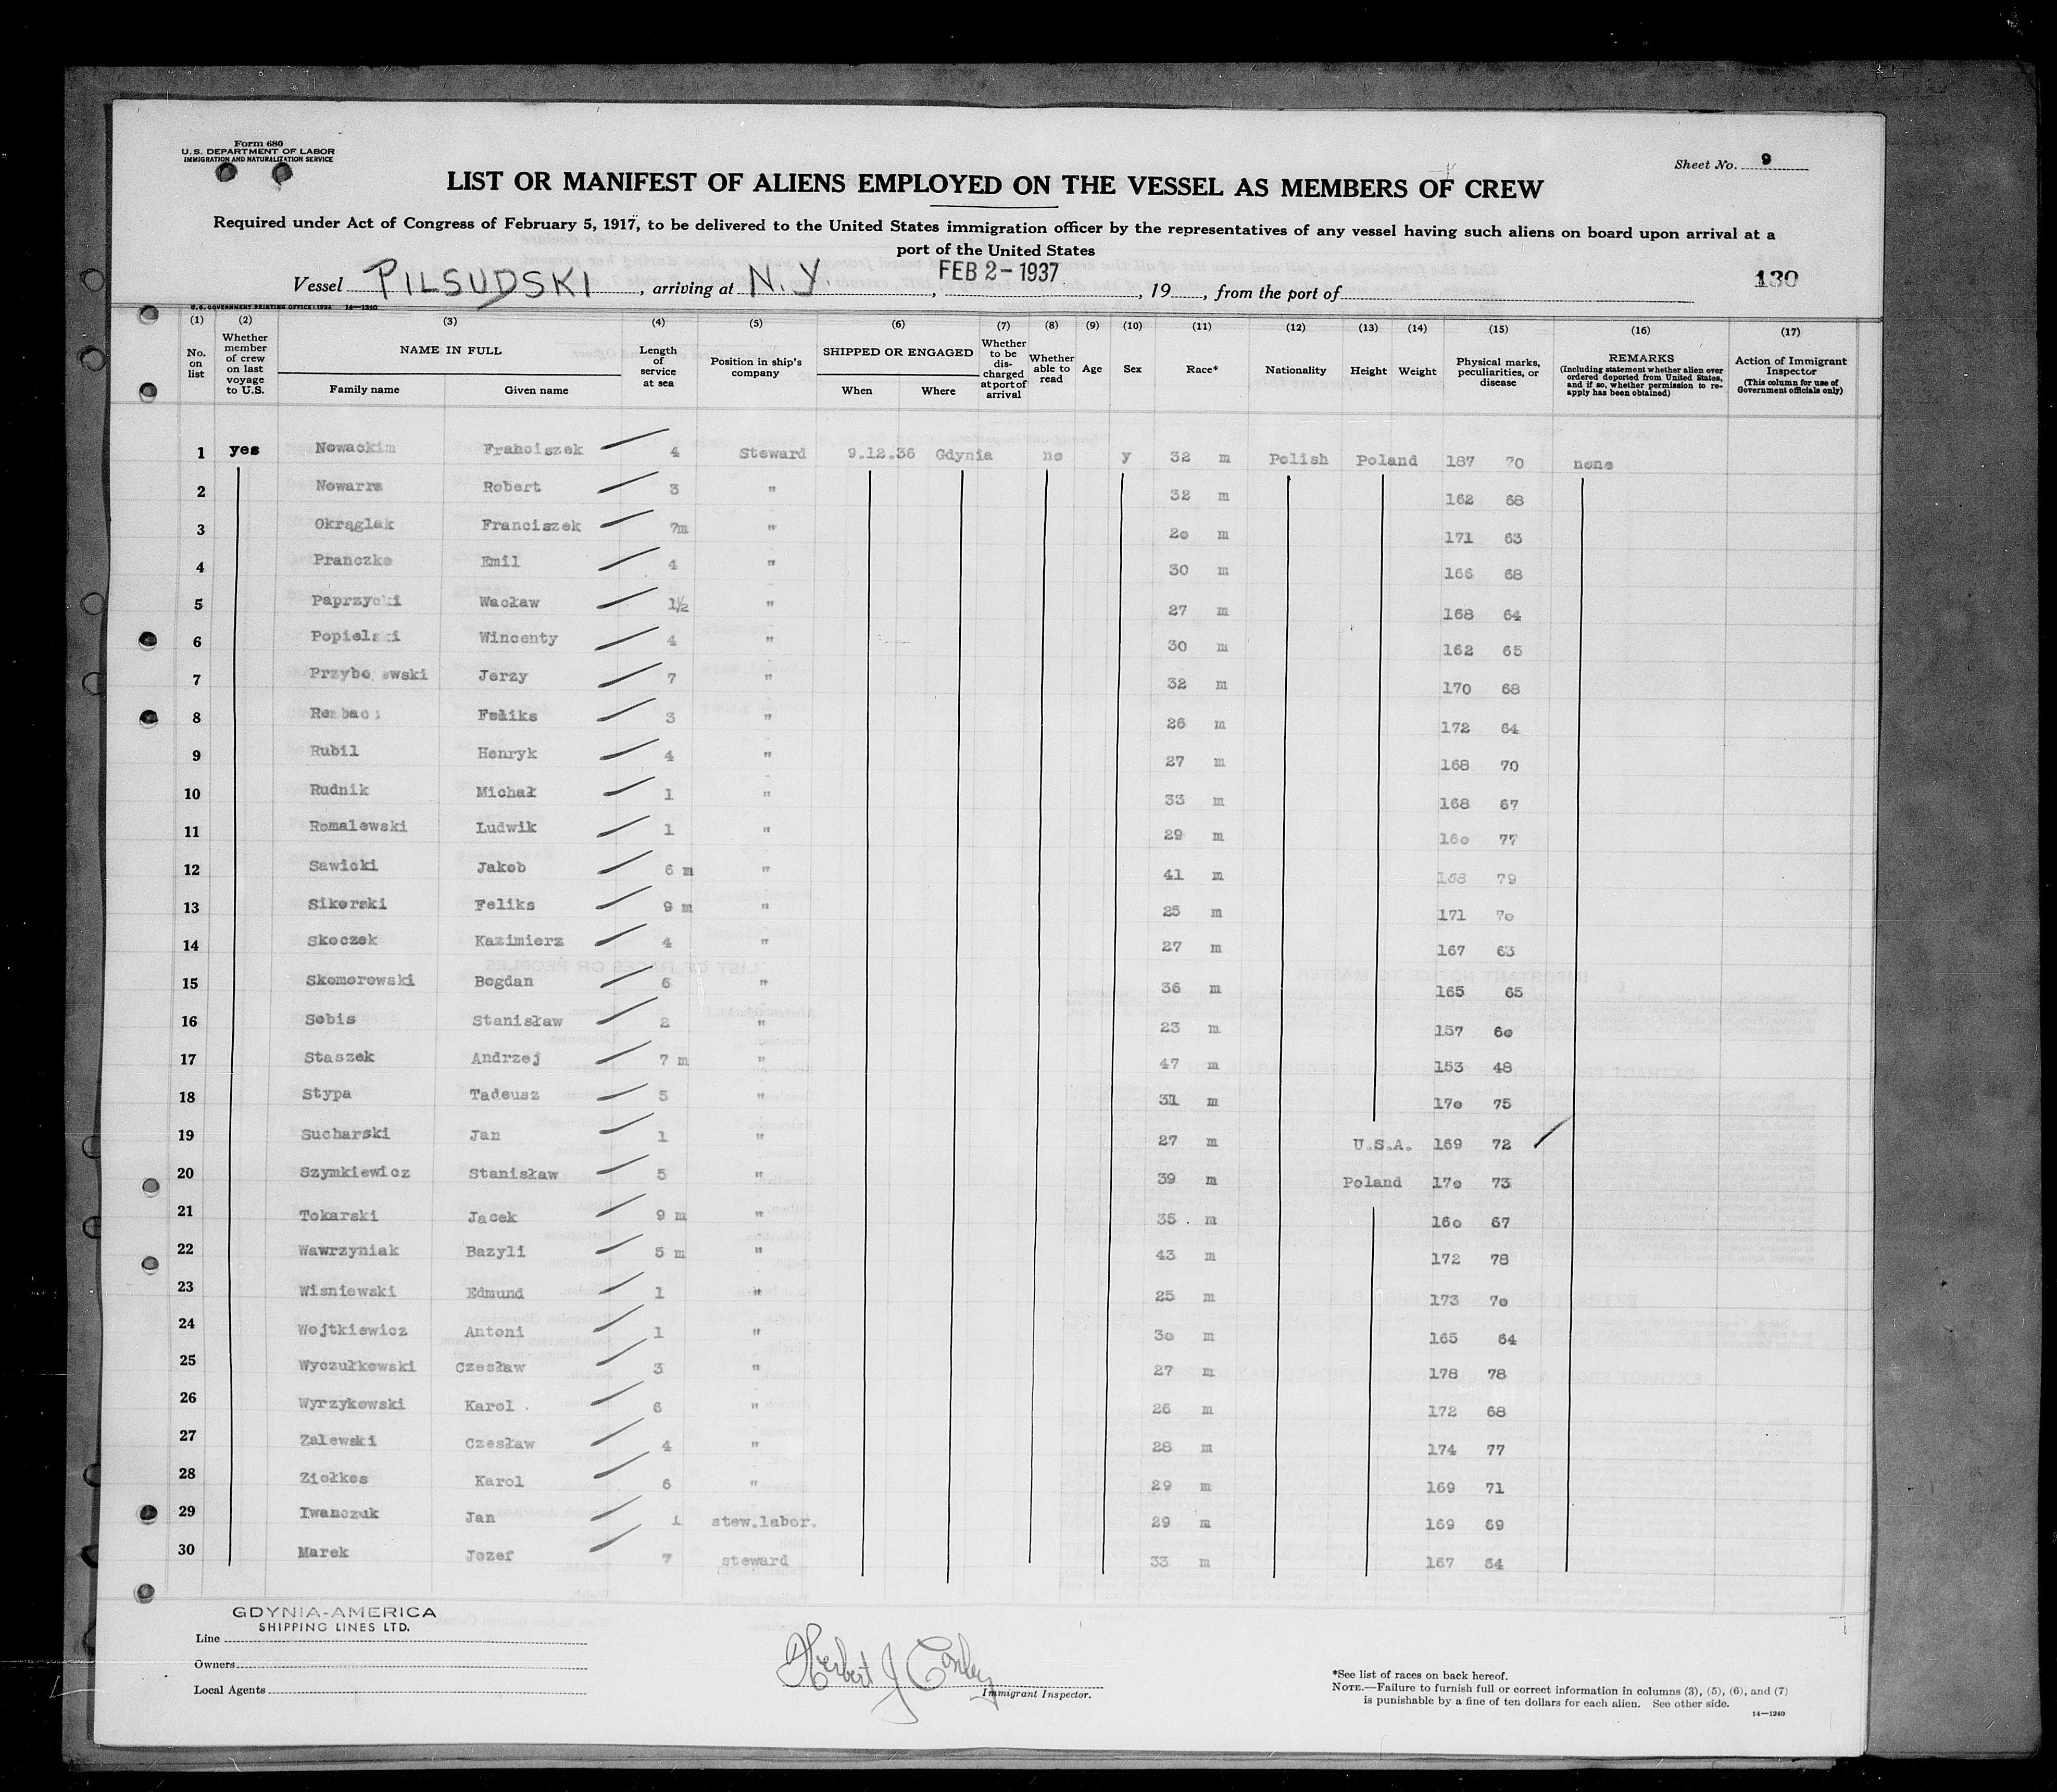 Form 680
U.S. DEPARTMENT OF LABOR
IMMIGRATION AND NATURALIZATION SERVICE
Sheet No. 9
LIST OR MANIFEST OF ALIENS EMPLOYED ON THE VESSEL AS MEMBERS OF CREW
Required under Act of Congress of February 5, 1917, to be delivered to the United States immigration officer by the representatives of any vessel having such aliens on board upon arrival at a
port of the United States
Vessel PILSUDSKI, arriving at N.Y., FEB 2-1937, 19, from the port of
130
U.S. GOVERNMENT PRINTING OFFICE: 1934 14—1240
(1) (2) (3) (4) (5) (6) (7) (8) (9) (10) (11) (12) (13) (14) (15) (16) (17)
No. on list
Whether member of crew on last voyage to U.S.
NAME IN FULL
Family name Given name
Length of service at sea
Position in ship's company
SHIPPED OR ENGAGED
When Where
Whether to be discharged at port of arrival
Whether able to read
Age
Sex
Race*
Nationality
Height
Weight
Physical marks, peculiarities, or disease
REMARKS
(Including statement whether alien ever ordered deported from United States, and if so, whether permission to reapply has been obtained)
Action of Immigrant Inspector
(This column for use of Government officials only)
1 yes Nowackim Franciszek 4 Steward 9.12.36 Gdynia no y 32 m Polish Poland 187 70 none
2 Nowarra Robert 3 " 32 m 162 68
3 Okrąglak Franciszek 7m " 20 m 171 63
4 Pranczke Emil 4 " 30 m 166 68
5 Paprzycki Wacław 1½ " 27 m 168 64
6 Popielski Wincenty 4 " 30 m 162 65
7 Jerzy 7 " 32 m 170 68
8 Feliks 3 " 26 m 172 64
9 Rubil Henryk 4 " 27 m 168 70
10 Rudnik Michał 1 " 33 m 168 67
11 Romalewski Ludwik 1 " 29 m 160 77
12 Sawicki Jakob 6 m " 41 m 168 79
13 Sikorski Feliks 9 m " 25 m 171 70
14 Skoczek Kazimierz 4 " 27 m 167 63
15 Skomorowski Bogdan 6 " 36 m 165 65
16 Sobis Stanisław 2 " 23 m 157 60
17 Staszek Andrzej 7 m " 47 m 153 48
18 Stypa Tadeusz 5 " 31 m 170 75
19 Sucharski Jan 1 " 27 m U.S.A. 169 72
20 Szymkiewicz Stanisław 5 " 39 m Poland 170 73
21 Tokarski Jacek 9 m " 35 m 160 67
22 Wawrzyniak Bazyli 5 m " 43 m 172 78
23 Wisniewski Edmund 1 " 25 m 173 70
24 Wojtkiewicz Antoni 1 " 30 m 165 64
25 Wyczułkowski Czesław 3 " 27 m 178 78
26 Wyrzykowski Karol 6 " 26 m 172 68
27 Zalewski Czesław 4 " 28 m 174 77
28 Ziołkos Karol 6 " 29 m 169 71
29 Iwanczuk Jan 1 stew.labor. 29 m 169 69
30 Marek Jozef 7 steward 33 m 167 64
GDYNIA-AMERICA
SHIPPING LINES LTD.
Line
Owners
Local Agents
Herbert J Conley
Immigrant Inspector.
*See list of races on back hereof.
NOTE.—Failure to furnish full or correct information in columns (3), (5), (6), and (7)
is punishable by a fine of ten dollars for each alien. See other side.
14—1240